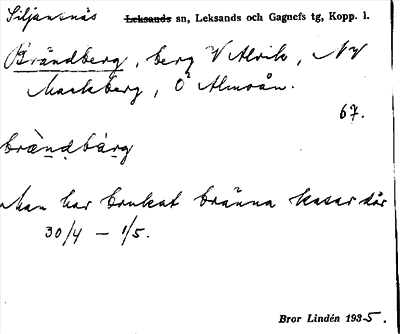 Siljansnäs Leksands sn, Leksands och Gagnefs tg, Kopp. l.
Brändberg, berg V Alvik, NV
Mackberg, Ö Almoån.
67.
brä̀ndbàrg
Man har brukat bränna kasar där
30/4 – 1/5.
Bror Lindén 1935.